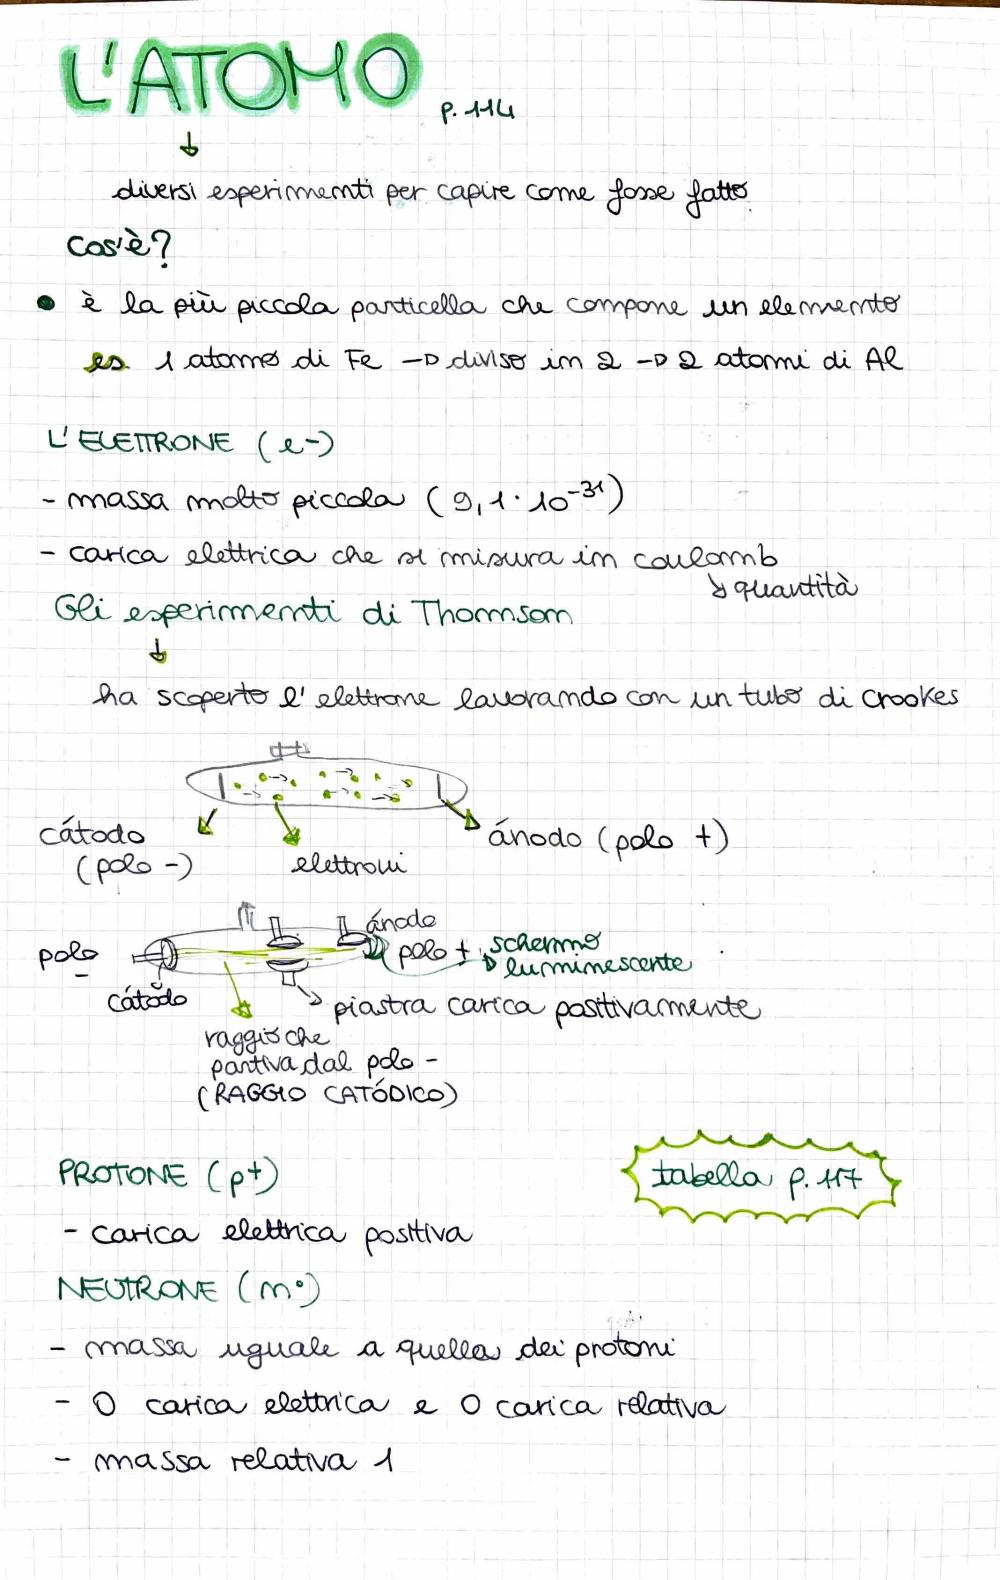 L'ATOMO p. 114
↓
diversi esperimenti per capire come fosse fatto
Cos'è?
• è la più piccola particella che compone un elemento
es. 1 atomo di Fe → diviso in 2 → 2 atomi di Al
L'ELETTRONE (e-)
- massa molto piccola (9,1 · 10⁻³¹)
- carica elettrica che si misura in coulomb
↘ quantità
Gli esperimenti di Thomson
↓
ha scoperto l'elettrone lavorando con un tubo di Crookes
cátodo
(polo -)
elettroni
ánodo (polo +)
polo
-
cátodo
ánodo
polo +
schermo
luminescente
piastra carica positivamente
raggio che
partiva dal polo -
(RAGGIO CATÓDICO)
PROTONE (p+)
tabella p. 117
- carica elettrica positiva
NEUTRONE (n°)
- massa uguale a quella dei protoni
- 0 carica elettrica e 0 carica relativa
- massa relativa 1